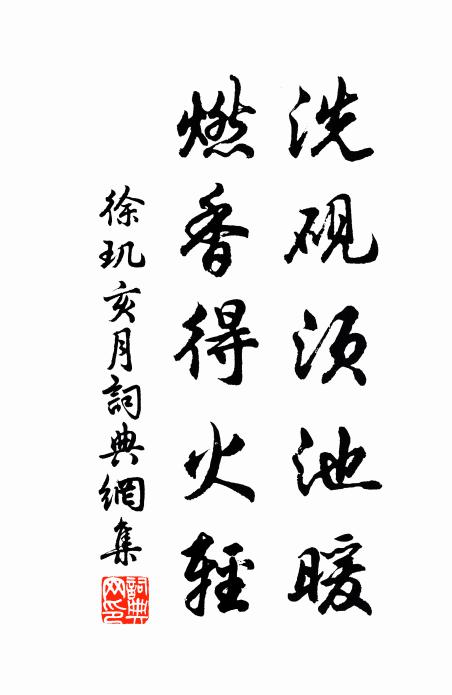 洗硯須池暖
燃香得火輕
徐玑亥月詞典網集
詞典
网印